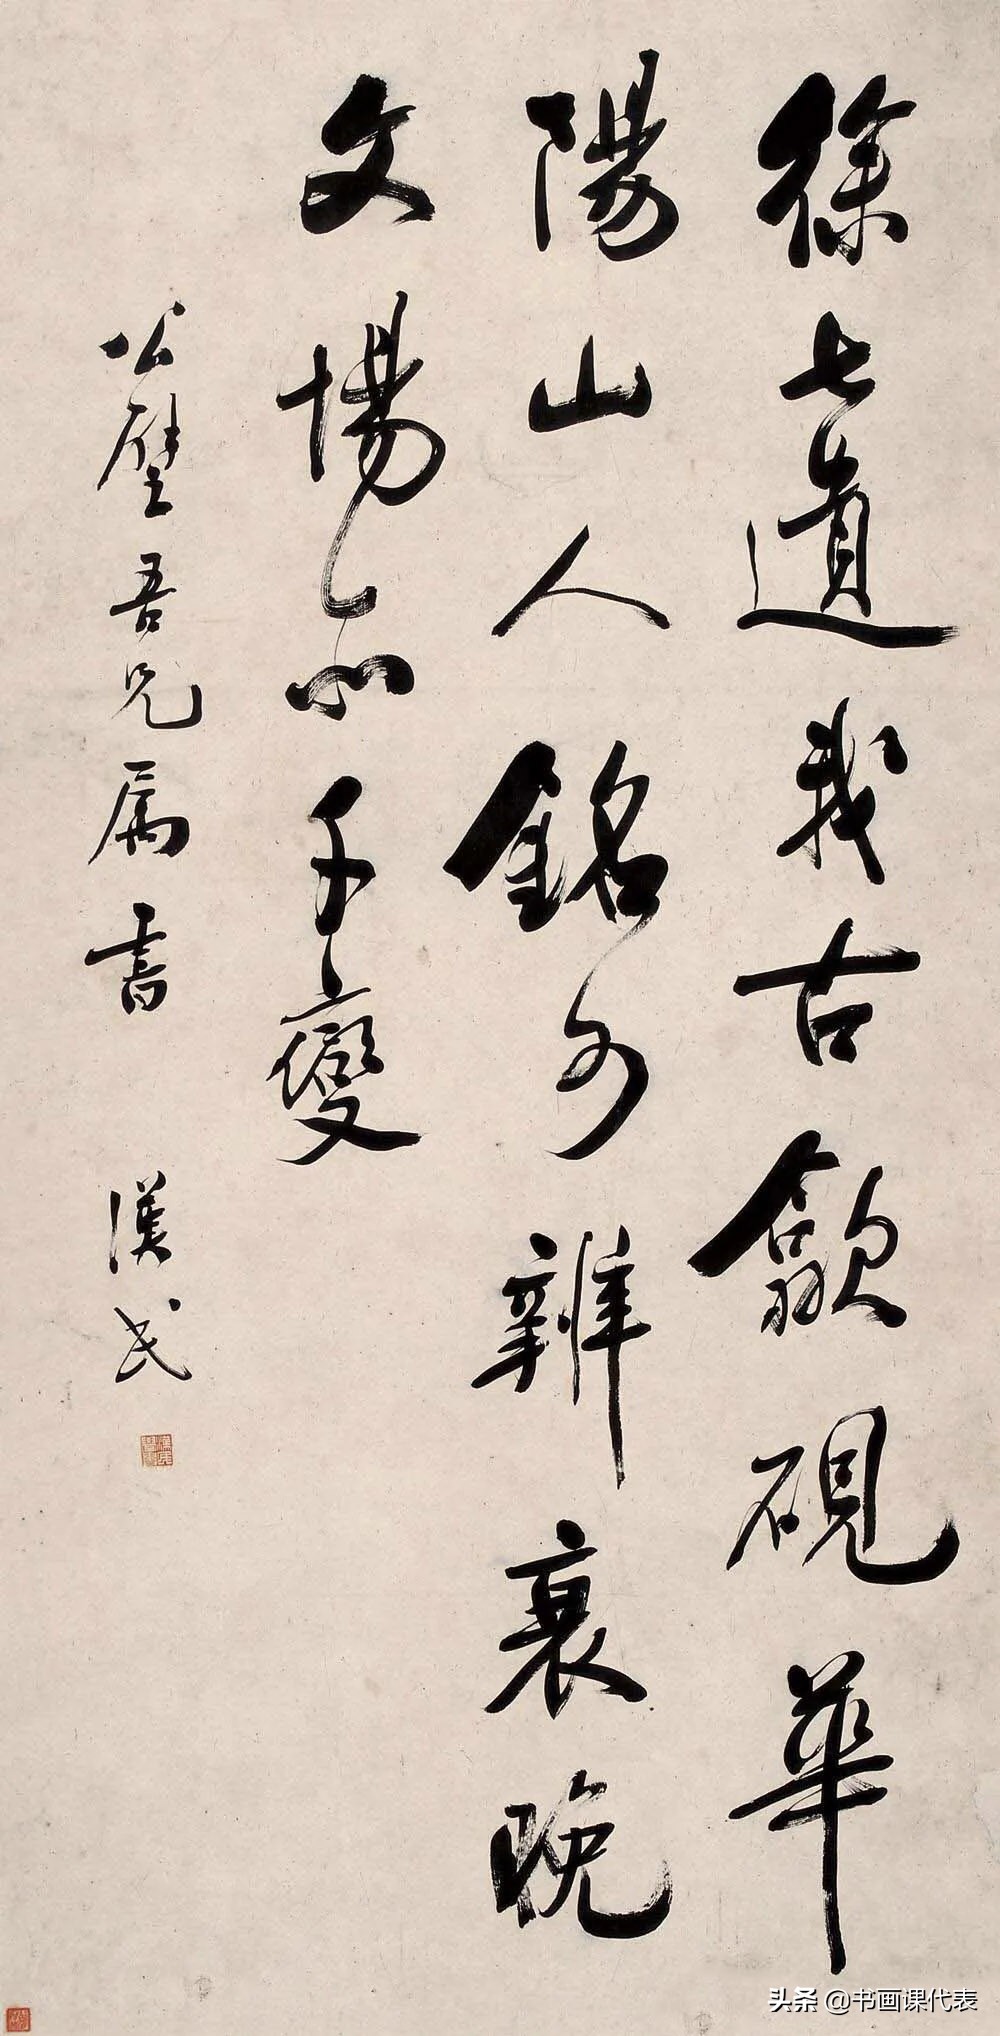 徐七遺我古歙硯華
陽山人銘可辨衰晚
文場亦千變
公璧吾兄屬書 漢民
头条 @书画课代表